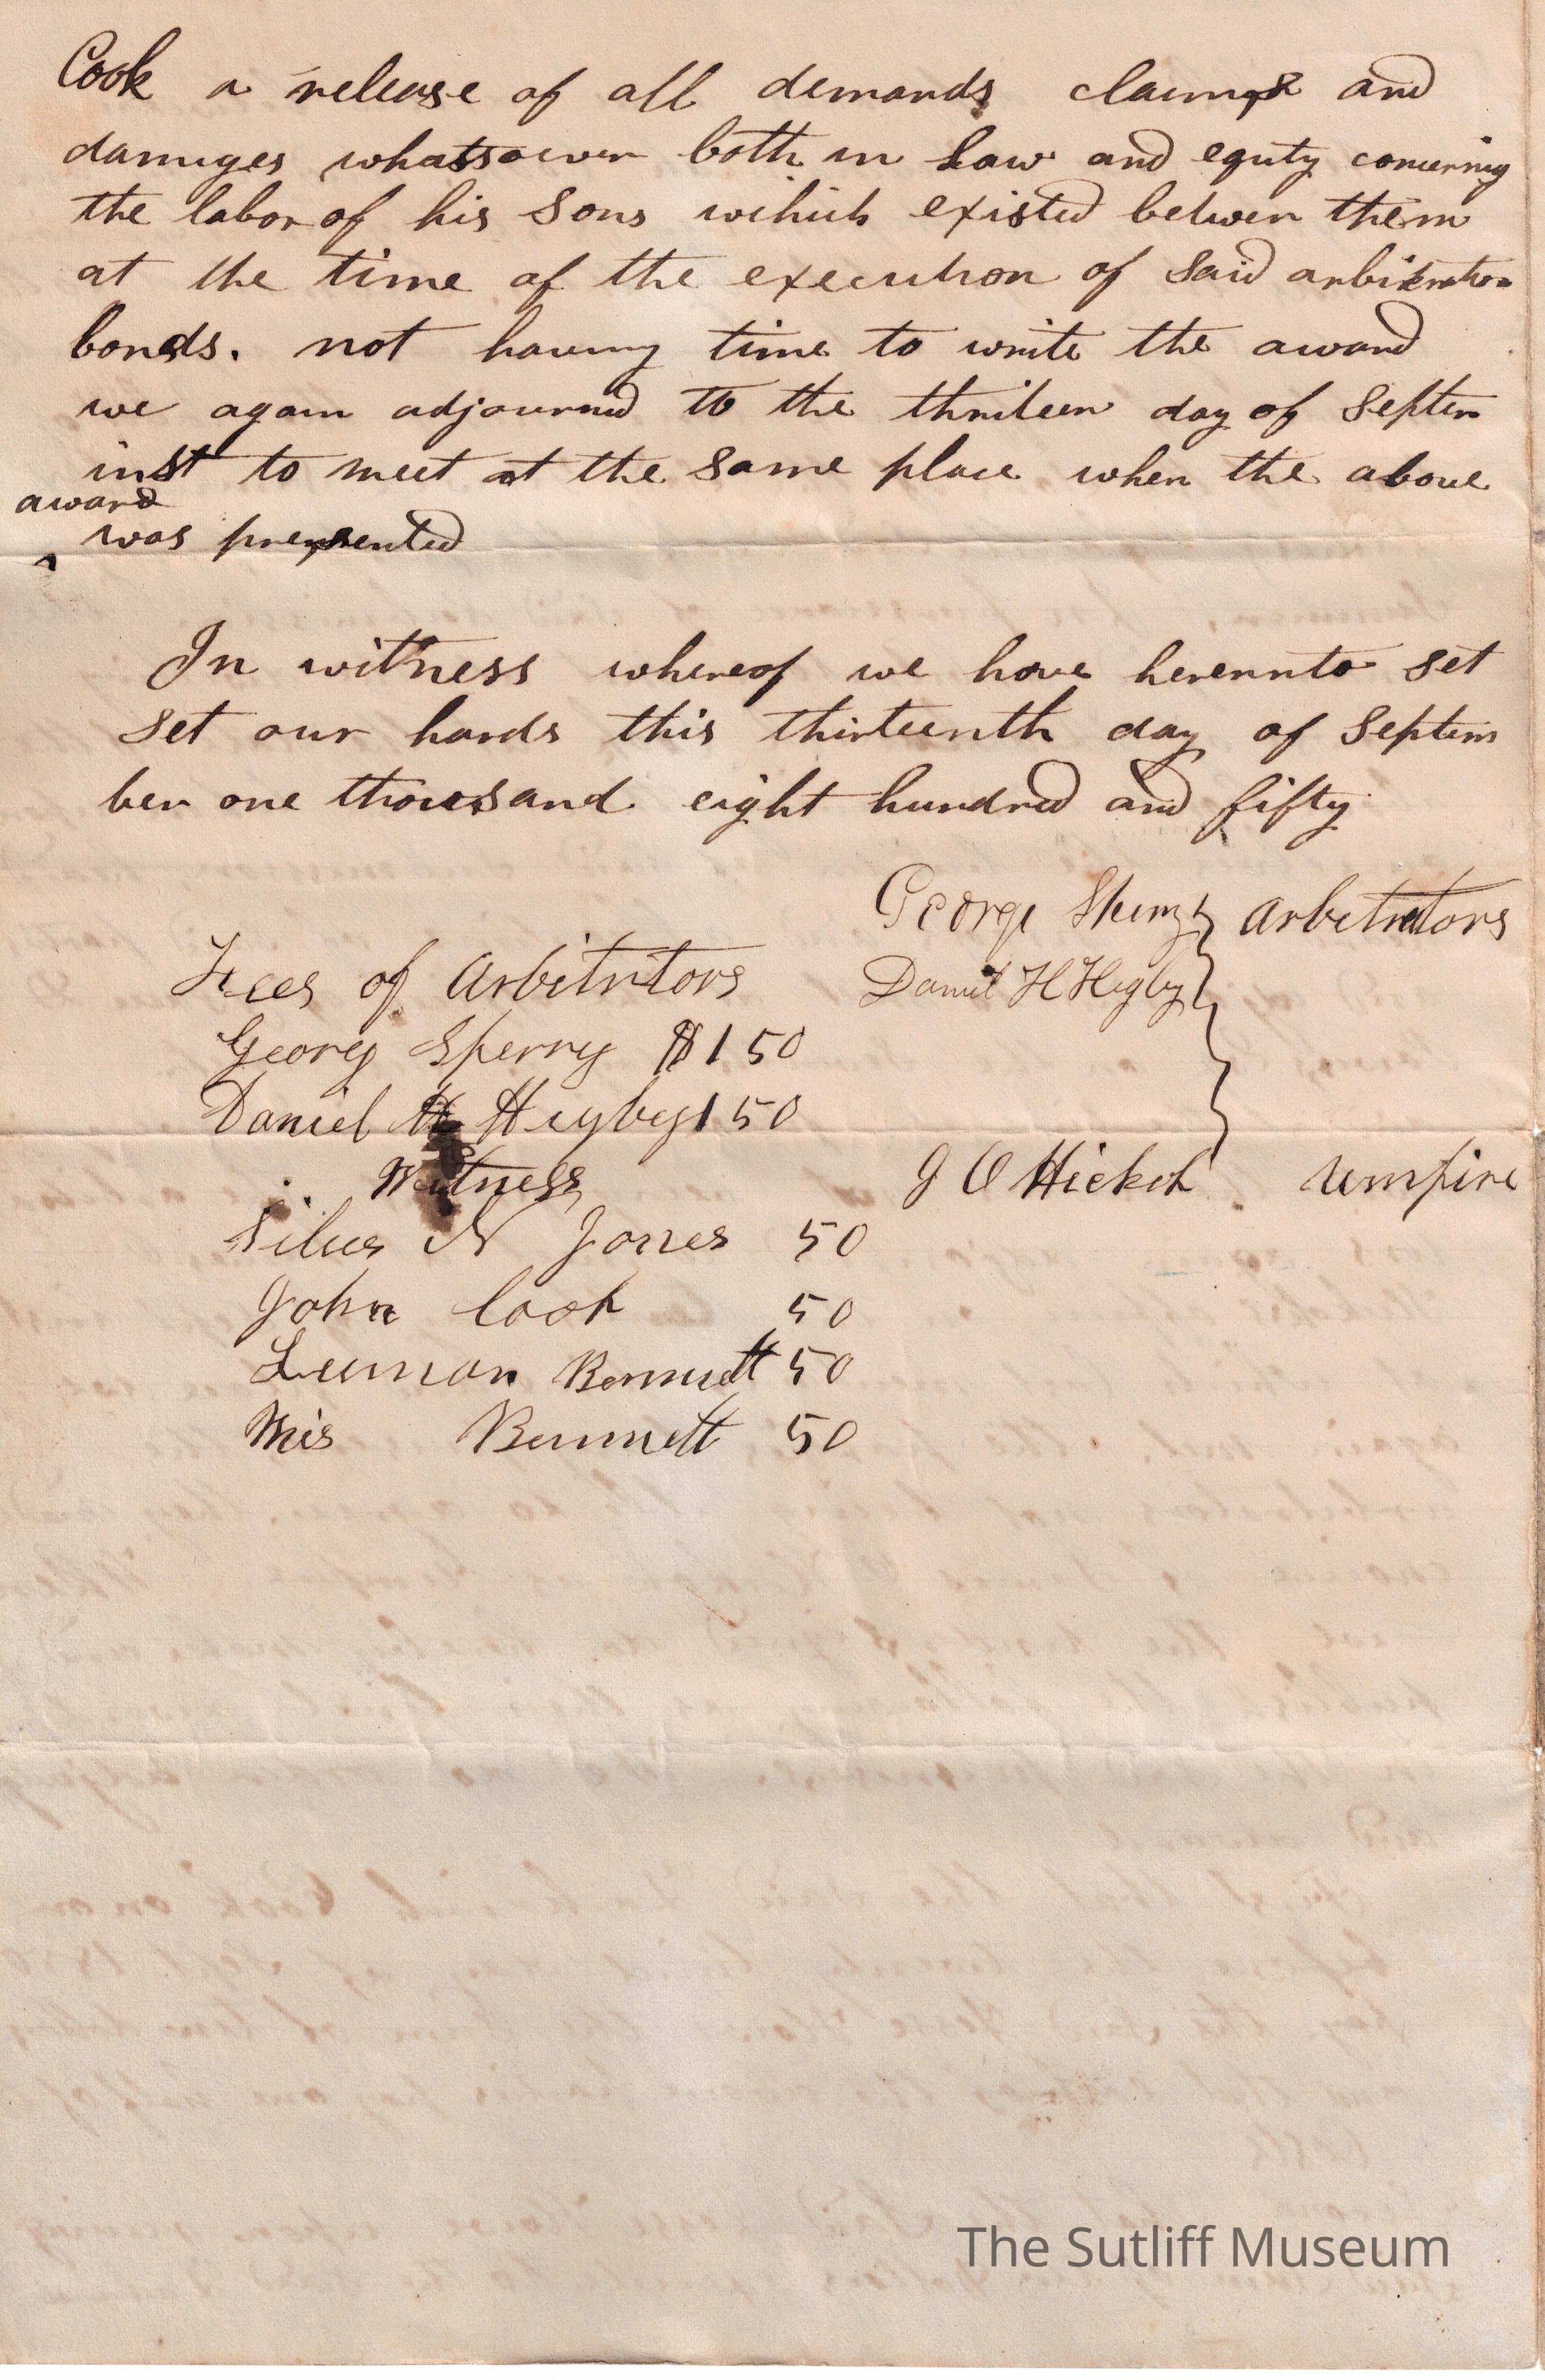 Cook a release of all demands claims and
damages whatsoever both in Law and equity concerning
the labor of his Sons which existed between them
at the time of the execution of Said arbitration
bonds. not having time to write the award
we again adjourned to the thriteen day of Septem
inst to meet at the Same place when the above
award
was presented
In witness whereof we have hereunto set
set our hands this thirteenth day of Septem
ber one thousand eight hundred and fifty
George Sperry Arbetrators
Fees of Arbitrtors
Daniel H Higby
Georg Sperry $1 50
Daniel H Higby 1 50
Witness
J O Hickok Umpire
Silas N Jones 50
John Cook 50
Luman Bennett 50
Mis Bennett 50
The Sutliff Museum